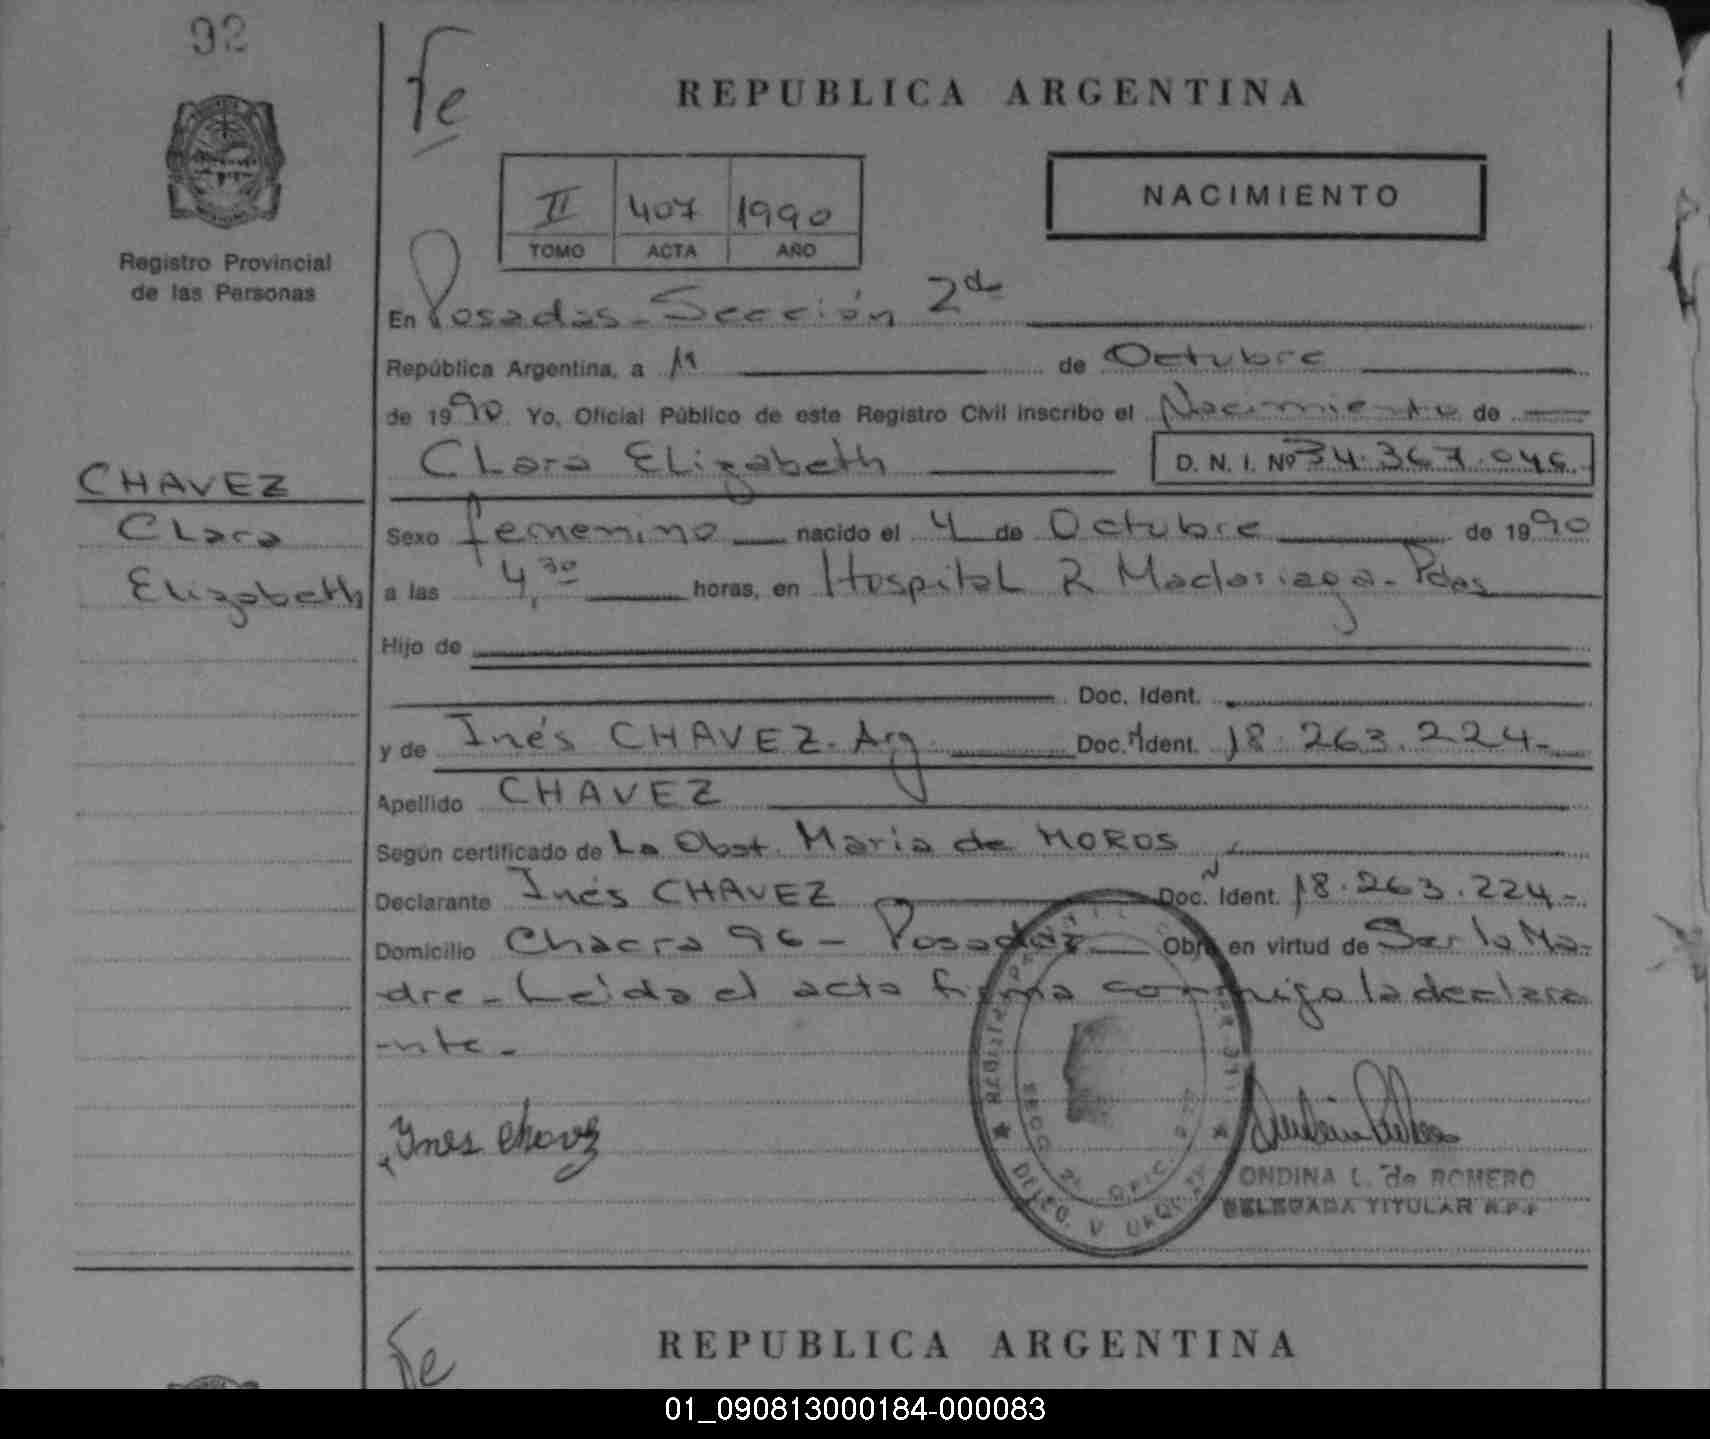 92
Fe
REPUBLICA ARGENTINA
Registro Provincial
de las Personas
II 407 1990
TOMO ACTA AÑO
NACIMIENTO
En Posadas - Sección 2da
República Argentina, a 11 de Octubre
de 1990. Yo, Oficial Público de este Registro Civil inscribo el Nacimiento de
Clara Elizabeth D. N. I. Nº 34.367.046.
CHAVEZ
Clara
Elizabeth
Sexo femenino nacido el 4 de Octubre de 1990
a las 4,30 horas, en Hospital R Madariaga - Pdas
Hijo de
Doc. Ident.
y de Inés CHAVEZ. Arg Doc. Ident. 18.263.224-
Apellido CHAVEZ
Según certificado de La Obst. Maria de MOROS
Declarante Inés CHAVEZ Doc. Ident. 18.263.224-
Domicilio Chacra 96 - Posadas Obra en virtud de Ser la Ma-
dre - Leida el acta firma conmigo la declara
nte -
Ines Chavez
ONDINA L. de ROMERO
DELEGADA TITULAR R.P.P
REPUBLICA ARGENTINA
Fe
01_090813000184-000083